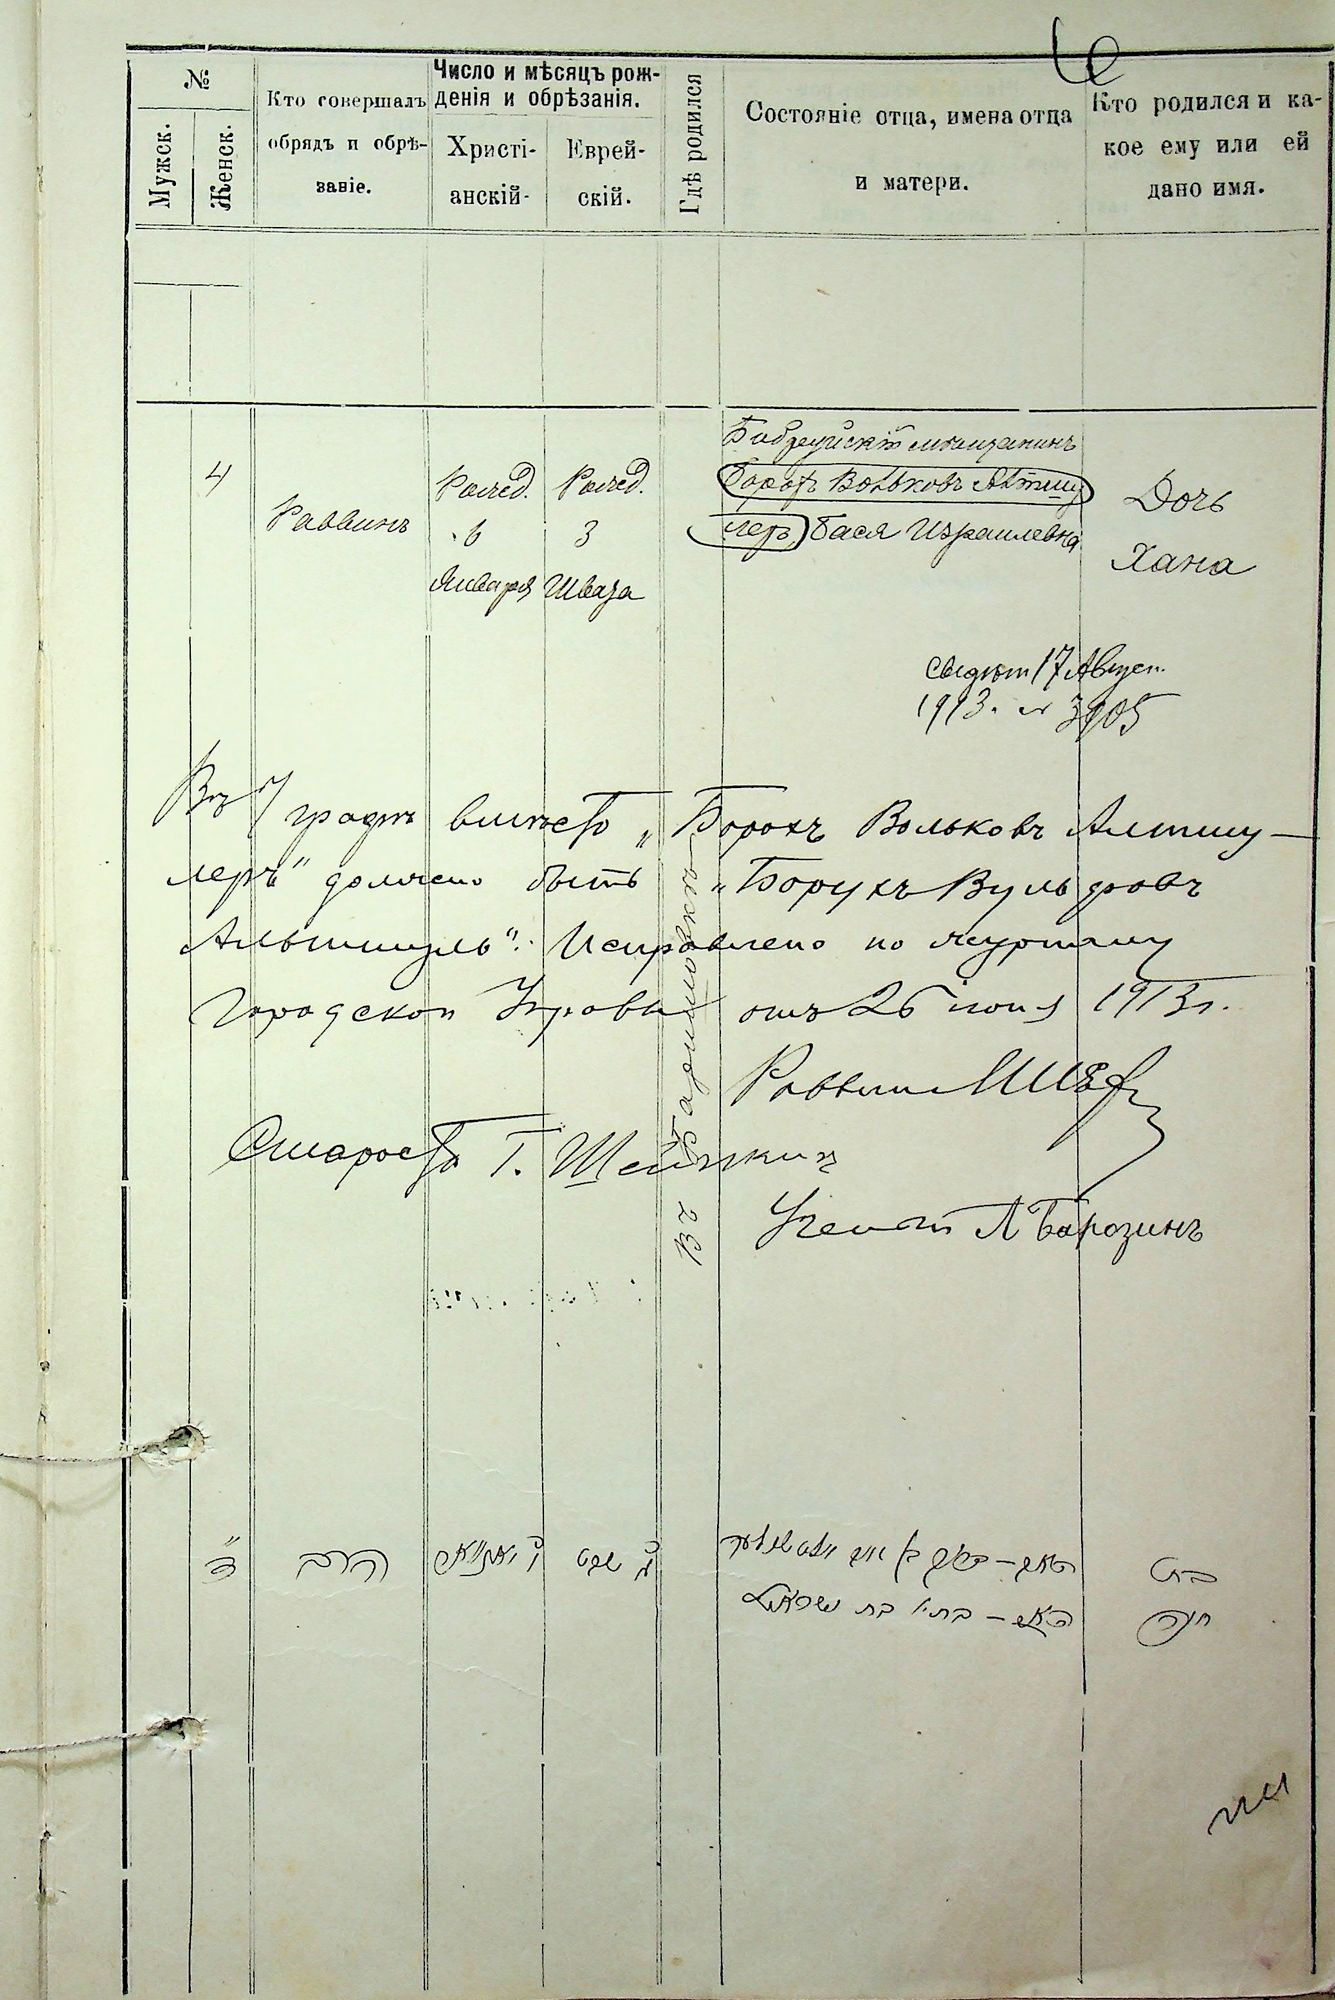 №
Мужск.
Женск.
Кто говершалъ
обрядъ и обрѣ-
заніе.
Число и мѣсяцъ рож-
денія и обрѣзанія.
Христі-
анскій-
Еврей-
скій.
Гдѣ родился
Состояніе отца, имена отца
и матери.
Кто родился и ка-
кое ему или ей
дано имя.
4
Раввинъ
Рожд.
6
Января
Рожд.
3
Швата
мѣщанинъ
Борохъ Вольковъ Алтшу
леръ, Бася Израилевна
Дочь
Хана
17 Август.
1913. № 3905
Въ 7 графѣ вмѣсто „Борохъ Вольковъ Алтшу-
леръ" должно быть „Борухъ Вульфовъ
Альтшуль". Исправлено по журналу
Городской Управы отъ 26 іюня 1913г.
Раввинъ
Староста Г.
Въ
ד׳
הרב
ו׳ יאנוואר
ג׳ שבט
האם – בתי׳ בת ישראל
בת
חנה